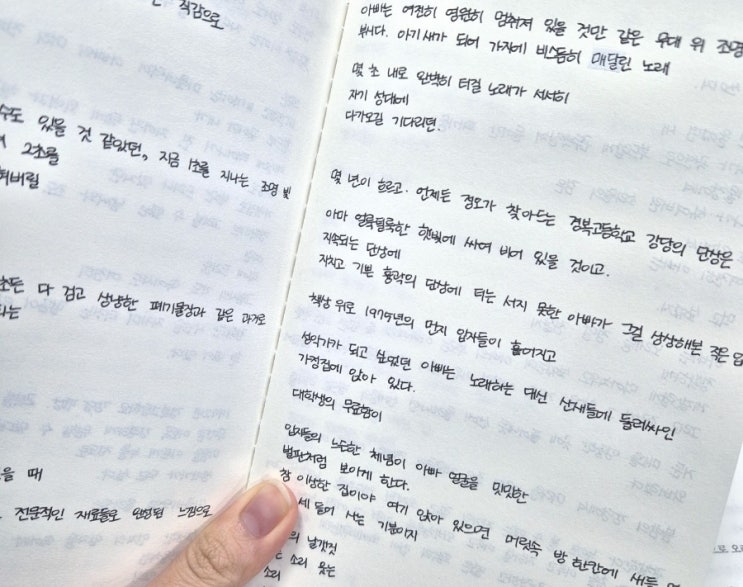 직감으로
수도 있을 것 같았던, 지금 1초를 지나는 조명 빛
2초를
혀버릴
초든 다 검고 성냥한 폐기물장과 같은 과거로
되는
을 때
전문적인 재료들로 완성된 느낌으로
아빠는 여전히 영원히 멈춰져 있을 것만 같은 무대 위 조명
봅니다. 아기새가 되어 가지에 비스듬히 매달린 노래
몇 초 내로 완벽히 터질 노래가 서서히
자기 성대에
다가오길 기다리면.
몇 년이 흐르고. 언제든 정오가 찾아드는 경북고등학교 강당의 단상은
아마 얼룩덜룩한 햇빛에 싸여 비어 있을 것이고.
지속되는 단상에
지치고 기쁜 흉곽의 단상에 더는 서지 못한 아빠가 그걸 상상해본 적은
책상 위로 1979년의 먼지 입자들이 흩어지고
성악가가 되고 싶었던 아빠는 노래하는 대신 선생들에 둘러싸인
가정집에 앉아 있다.
대학생의 무료함이
입자들의 느슨한 체념이 아빠 얼굴을 밋밋한
벌판처럼 보이게 한다.
참 이상한 집이야 여기 앉아 있으면 머릿속 방 한칸에 새들
세 들어 사는 기분이지
날갯짓
소리 웃는
소리